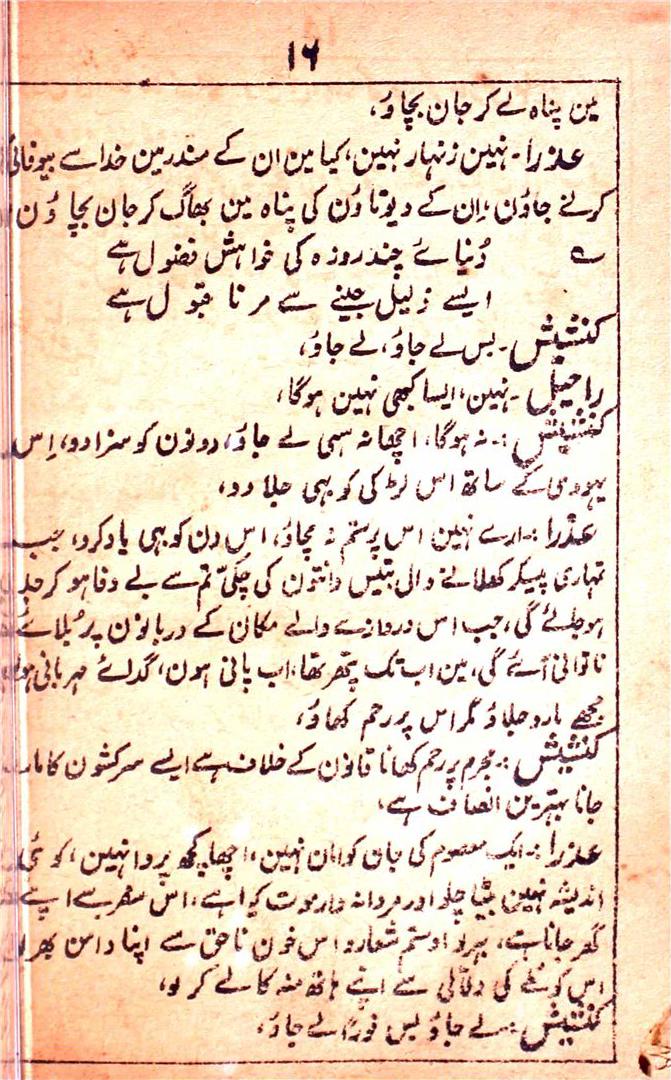 ۱۶
مین پناہ لے کر جان بچاؤ،
عذرا۔ نہین زنہار نہین، کیا مین ان کے مندر مین خدا سے بیوفائی
کرنے جاؤن، ان کے دیوتاؤن کی پناہ مین بھاگ کر جان بچاؤن
ے دُنیائے چند روزہ کی خواہش فضول ہے
ایسے ذلیل جینے سے مرنا قبول ہے
کنشیش۔ بس لے جاؤ، لے جاؤ،
راحیل۔ نہین، ایسا کبھی نہین ہوگا،
کنشیش:۔ نہ ہوگا، اچھا نہ سہی لے جاؤ، دونون کو سزا دو، اِس
یہودی کے ساتھ اس لڑکی کو بہی جلا دو،
عذرا:۔ ارے نہین اس پر ستم نہ مچاؤ، اس دن کو بہی یاد کرو، جب
تمہاری پیسکر کھلانے والی بتیس دانتون کی چکّی تم سے بے وفا ہو کر
ہو جائے گی، جب اس دروازے والے مکان کے دربانون پر بُلائے
ناتوانی آئے گی، مین اب تک پتھر تھا، اب پانی ہون، گدائے مہربانی ہون
مجھے مارو جلاؤ مگر اس پر رحم کھاؤ،
کنشیش:۔ مجرم پر رحم کھانا قانون کے خلاف ہے ایسے سرکشون کا مارا
جانا بہترین انصاف ہے،
عذرا:۔ ایک معصوم کی جان کو امان نہین، اچھا کچھ پروا نہین، کوئی
اندیشہ نہین بیٹا چلو اور مردانہ وار موت کو اس سفر سے اپنے
گھر جانا ہے، او ستم شعارو اس خون ناحق سے اپنا دامن بھر
اس کوئلے کی دلّالی سے اپنے ہاتھ منہ کالے کر لو،
کنشیش:۔ لے جاؤ بس فوراً لے جاؤ،